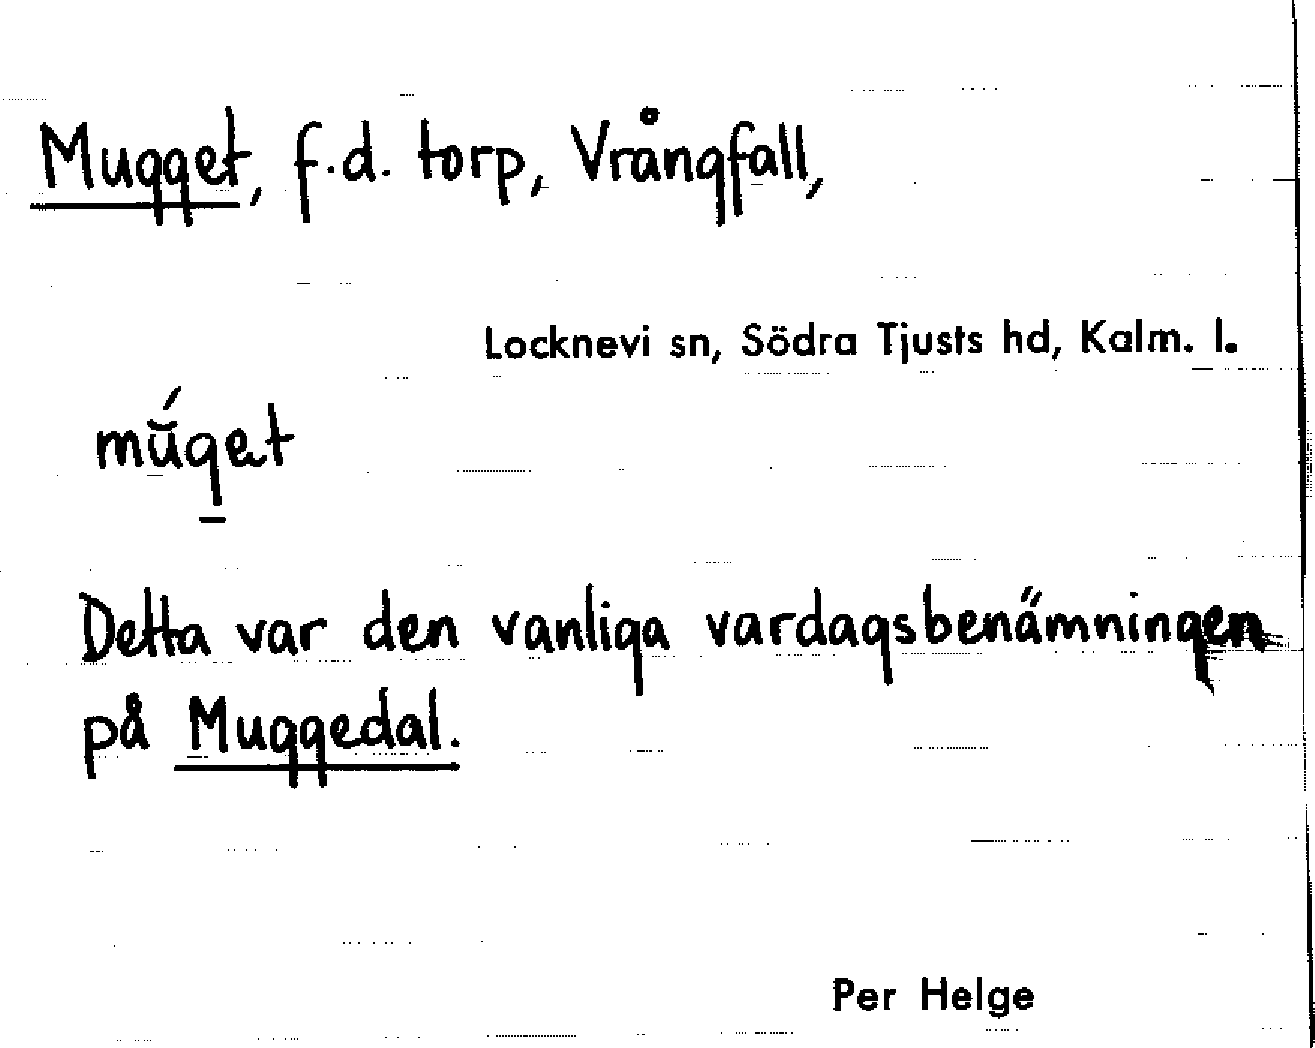 Mugget, f.d. torp, Vrångfall,
Locknevi sn, Södra Tjusts hd, Kalm. l.
mŭ́g̲et
Detta var den vanliga vardagsbenämningen
på Muggedal.
Per Helge